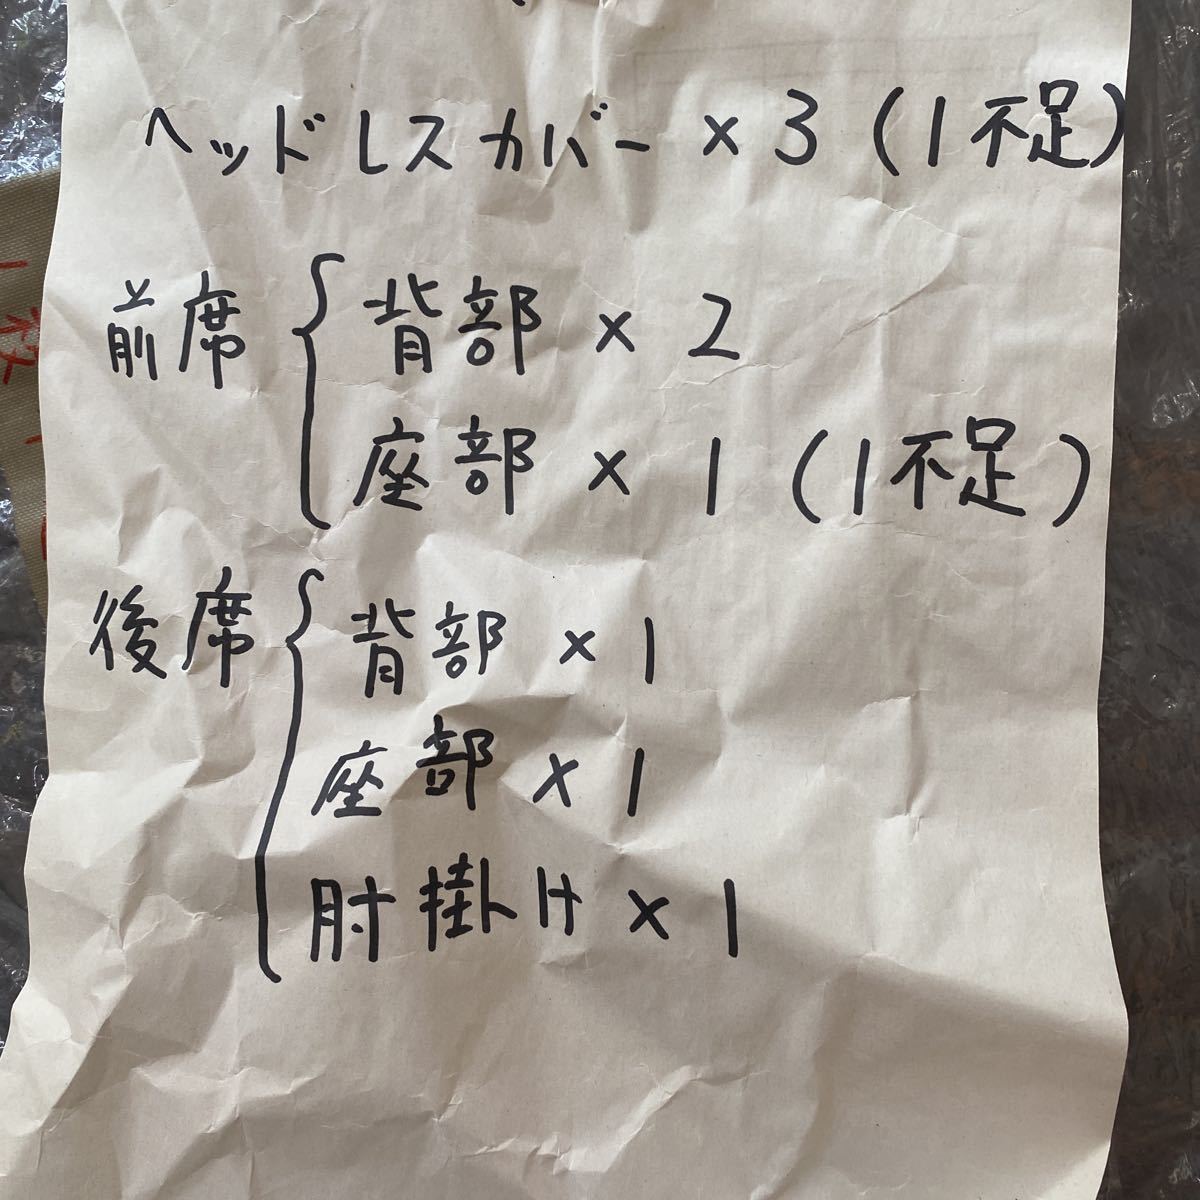 ヘッドレスカバー × 3 (1不足)
前席 { 背部 × 2
座部 × 1 (1不足)
後席 { 背部 × 1
座部 × 1
肘掛け × 1